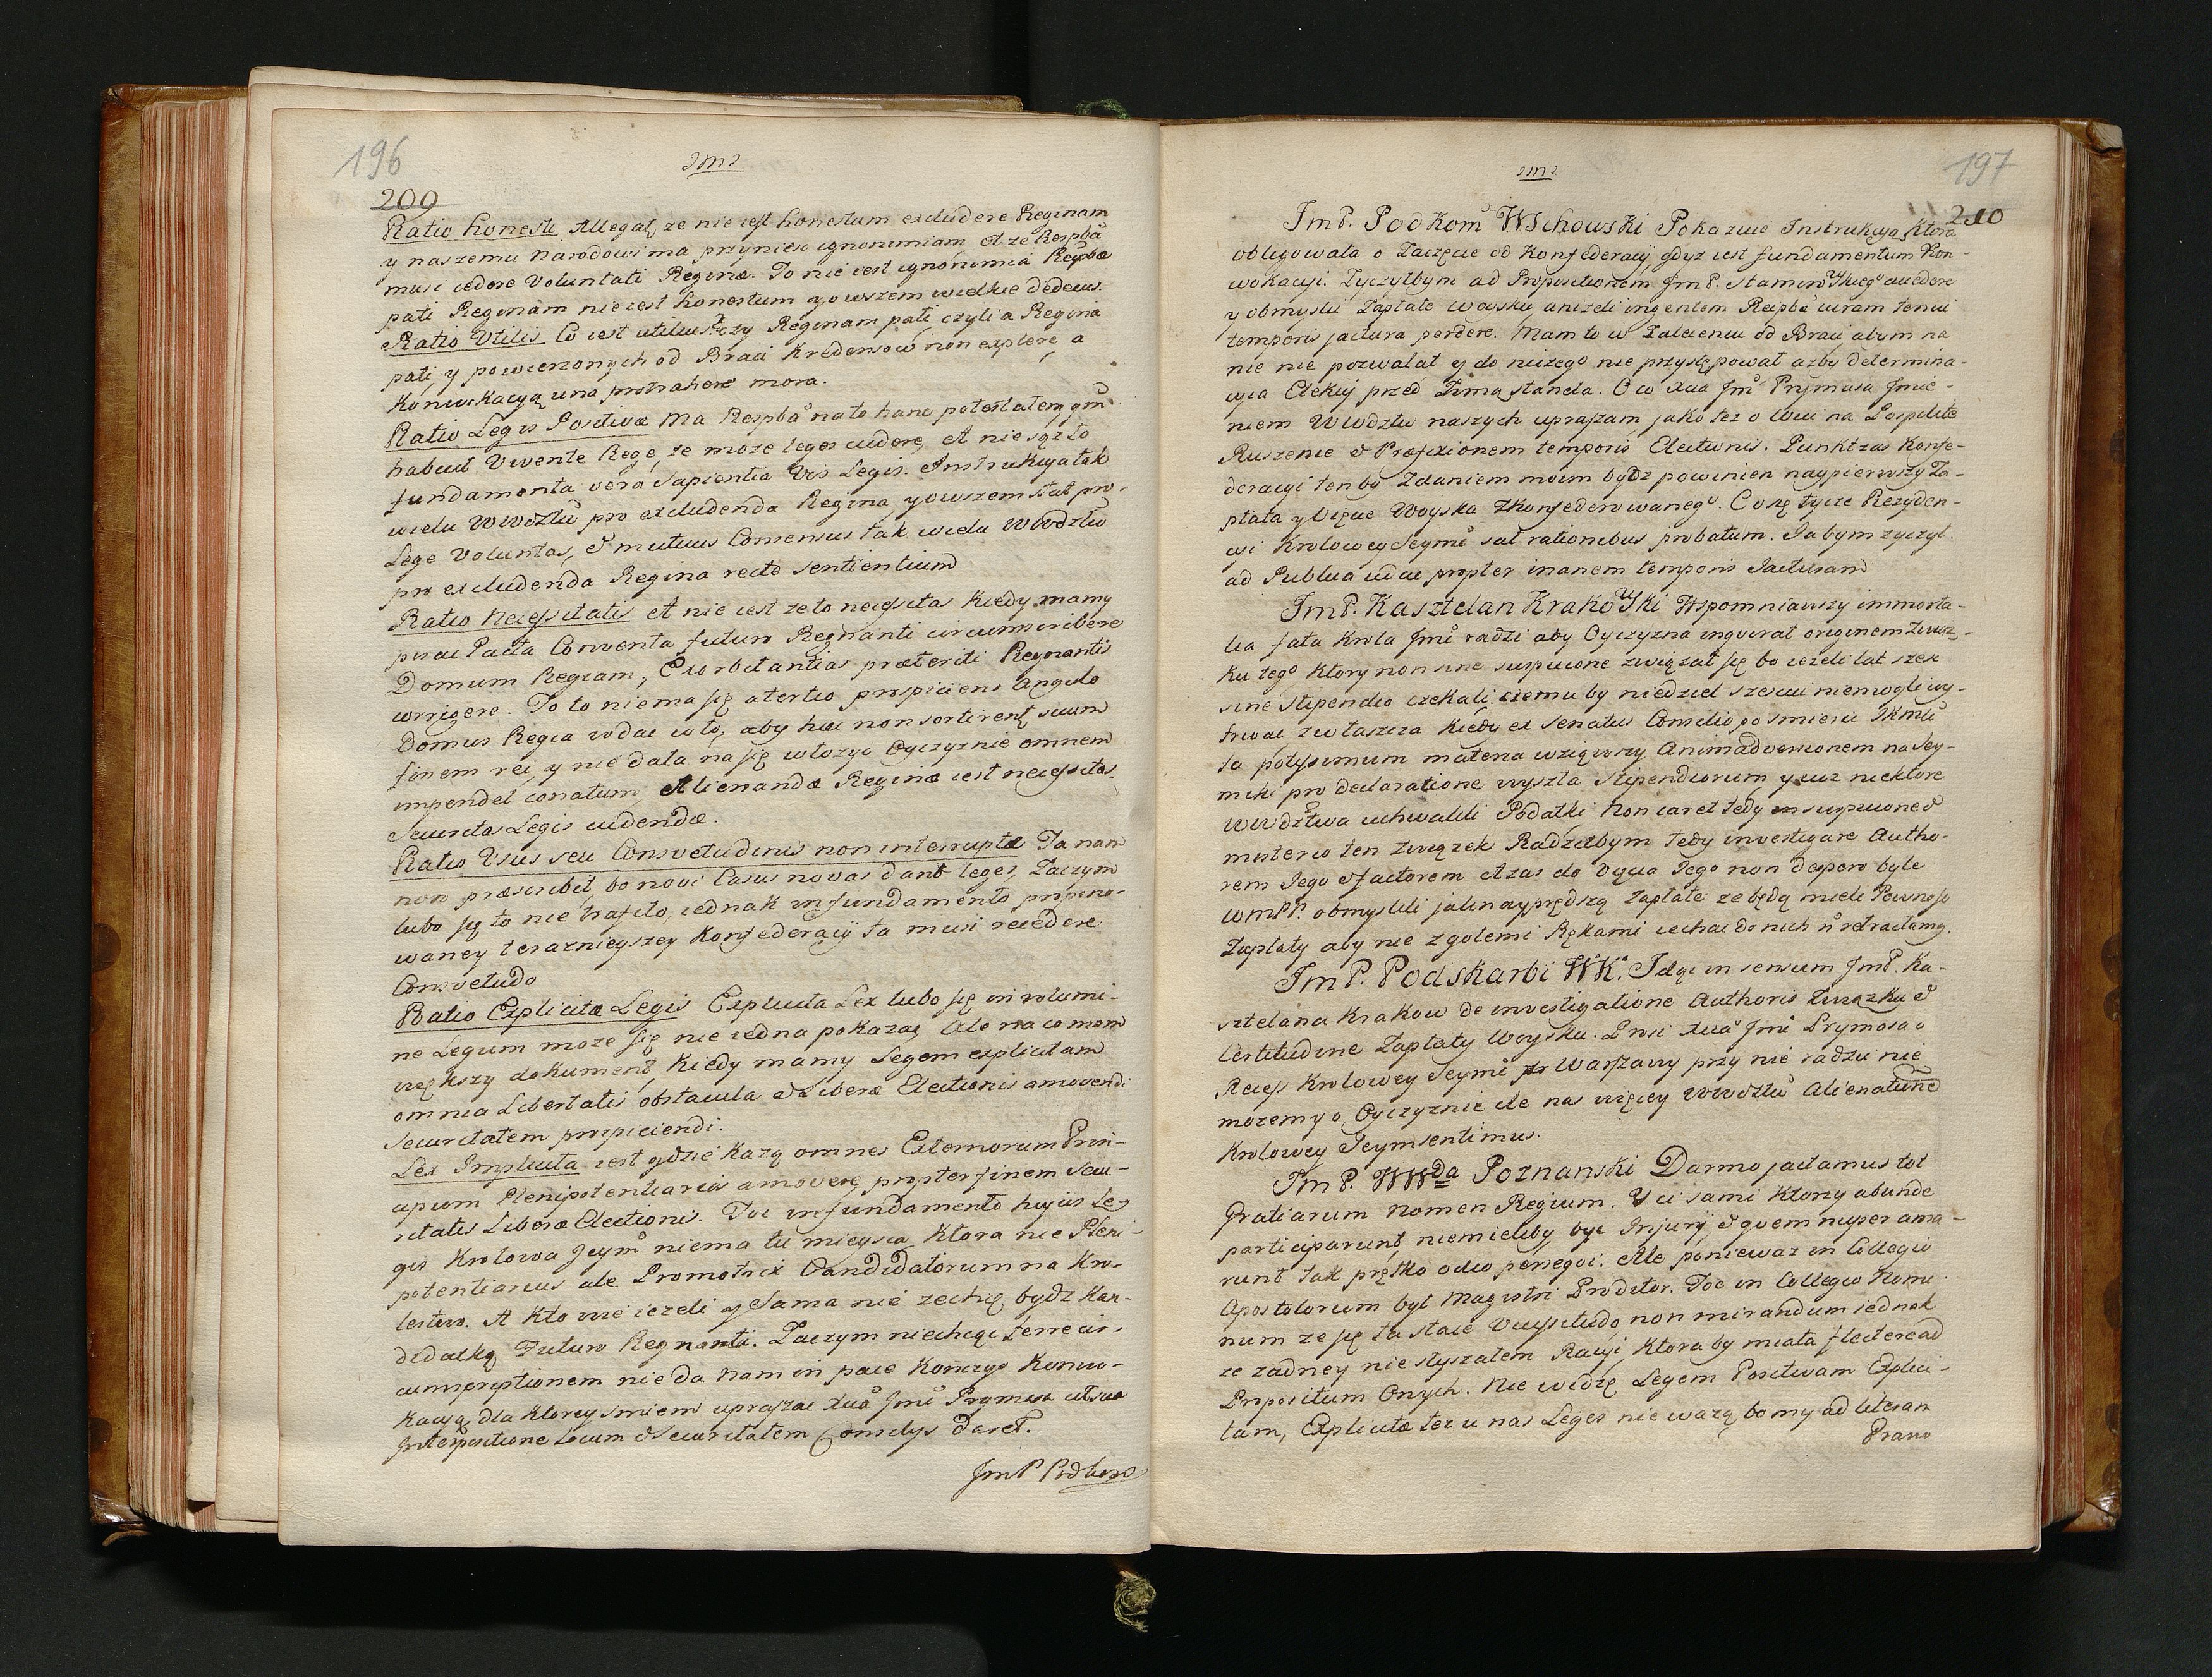 196
209
Ratio honesti Allegat, ze nie iest honestum excludere Reginam
y naszemu Narodowi ma przyniesc ignonimiam, et ze Respba
musi cedere Voluntati Reginæ. To nie iest ignonimia Respbæ
pati Reginam nie iest honestum y owszem wielkie dedecus.
Ratio Utilis Co iest utilius, czy Reginam pati, czyli a Regina
pati y powierzonych od Braci Kredensow non explere, a
Konwokacyą una protrahere mora.
Ratio Legis Positivæ Ma Respba na to hanc potestatem, qm
habuit Vivente Rege, ze moze leges cudere, et nie sąz to
fundamenta vera Sapientia Vis Legis. Instrukcya tak
wielu Wwdztw pro excludenda Regina, y owszem stat pro
Lege Voluntas, & mutuus Consensus tak wielu Wwdztw
pro excludenda Regina recte sentientium
Ratio necessitatis et nie iest ze to necessitas Kiedy mamy
pisac Pacta Conventa futuro Regnanti circumscribere
Domum Regiam, Exorbitantias præteriti Regnantis
corrigere. To to nie ma się a tertio prospiciens Angulo
Domus Regia wdac w to, aby hæc non sortirent suum
finem rei, y nie dala na się wlozyc Oyczyznie omnem
impendet conatum, Alienandæ Reginæ iest necessitas
Securitas Legis cudendæ.
Ratio Usus seu Consvetudinis non interruptæ Ta nam
non præscribit, bo novi Casus novas dant leges, Zaczym
lubo się to nie trafilo, iednak in fundamento propono-
waney terazniejszey Konfederacyi ta musi recedere
Consvetudo
Ratio Explicitæ Legis Explicita Lex lubo się in volumi-
ne Legum moze się nie iedna pokazac, Ale na co mam
większy dokument, Kiedy mamy Legem explicitam
omnia Libertatis obstacula & Liberæ Electionis amovendi
Securitatem prospiciendi.
Lex Implicita iest gdzie Kazą omnes Externorum Prin-
cipum Plenipotentiarios amovere, propter finem Secu-
ritatis Liberæ Electionis. Toc in fundamento hujus Le-
gis Krolowa Jeym niema tu mieysca, Ktora nie Pleni-
potentiarius ale Promotrix Candidatorum na Kro-
lestwo. A Kto wie iezeli y Sama nie zechcę bydz Kan-
didatką Futuro Regnanti. Zaczym niechcąc temre cir-
cumscriptionem nie da nam in pace Konczyc Konwo-
Kacyą, dla Ktorey smiem upraszac Xcia Jmci Prymasa ut sua
Interpositione Locum & Securitatem Consilys daret.
JmP Podkom
197
210
JmP. Podkom Wschowski Pokazuie Instrukcyą, Ktora
obligowala o Zaczęcie od Konfederacyi, gdyz iest fundamentum Kon-
wokacyi. Zyczylbym ad Propositionem JmP. Starosty accedere
y obmyslic Zaplate woysku, anizeli ingentem Reipbæ curam tenui
temporis jactura perdere. Mam to w Zaleceniu od Braci abym na
nic nie pozwalal y do niczego nie przystępował azby determina-
cyia Elekcyi przed Zimą stanela. O co Xcia Jmci Prymasa Jmie-
niem Wwdztw naszych upraszam jako tez o Wici na Pospolite
Ruszenie & Præfixionem temporis Electionis. Punkt zas Konfe-
deracyi ten by Zdaniem moim bydz powinien naypierwszy Za-
plata y Vięcie Woyska Zkonfederowanego. Co się tycze Rezyden-
cyi Krolowey Jeymci sat rationibus probatum. Ja bym zyczyl
ad Publica udac propter inanem temporis Jacturam
JmP. Kasztelan Krakowski Wspomniawszy immorta-
lia fata Krola Jmci radzi aby Oyczyzna inquirat originem Związ-
ku tego Ktory non sine suspicione związal się bo iezeli lat szesc
sine stipendio czekali, czemu by niedziel szesciu niemogli wy-
trwac zwlaszcza kiedy ex Senatus Consilio po smierci JKmci
ta potyssimum materia wziąwszy Animadversionem na Sey-
miki pro declaratione wyszla Stipendiorum y iuz niektore
Wwdztwa uchwalili Podatki Non caret tedy suspicione &
misterio ten Związek Radzilbym tedy investigare Autho-
rem Jego & factorem a zas do Vięcia Jego non despero byle
WmPP. obmyslili jaknayprędszą zaplate ze będą mieli Pewnosc
Zaplaty aby nie z golemi Rękami iechac do nich n retractamq.
JmP. Podskarbi WK. Idąc in sensum JmP. Ka-
sztelana Krakow de investigatione Authoris Związku &
Certitudine Zaplaty Woysku. Prosi Xcia Jmci Prymasa o
Recess Krolowey Jeymci Warszawy przy nie radzic nie
mozemy o Oyczyznie ile nas więcey Wwdztw Alienatione
Krolowey Jeymsentimus.
JmP. WWda Poznanski Darmo jactamus tot
Gratiarum nomen Regium. Y ci sami Ktorzy abunde
participarunt niemieliby byc Injurij & quem nuper ama-
runt tak prętko odio persequi. Ale poniewaz in Collegio
Apostolorum byl Magistri Proditor. Toc in Collegio Homi-
num ze się ta staie Vicissitudo non mirandum iednak
ze zadney nie slyszalem Racyi Ktora by miala flectere ad
Propositum Onych. Nie widzę Legem Positivam Explici-
tam, Explicitæ tez u nas Leges nie wazą bo my ad literam
Prawo